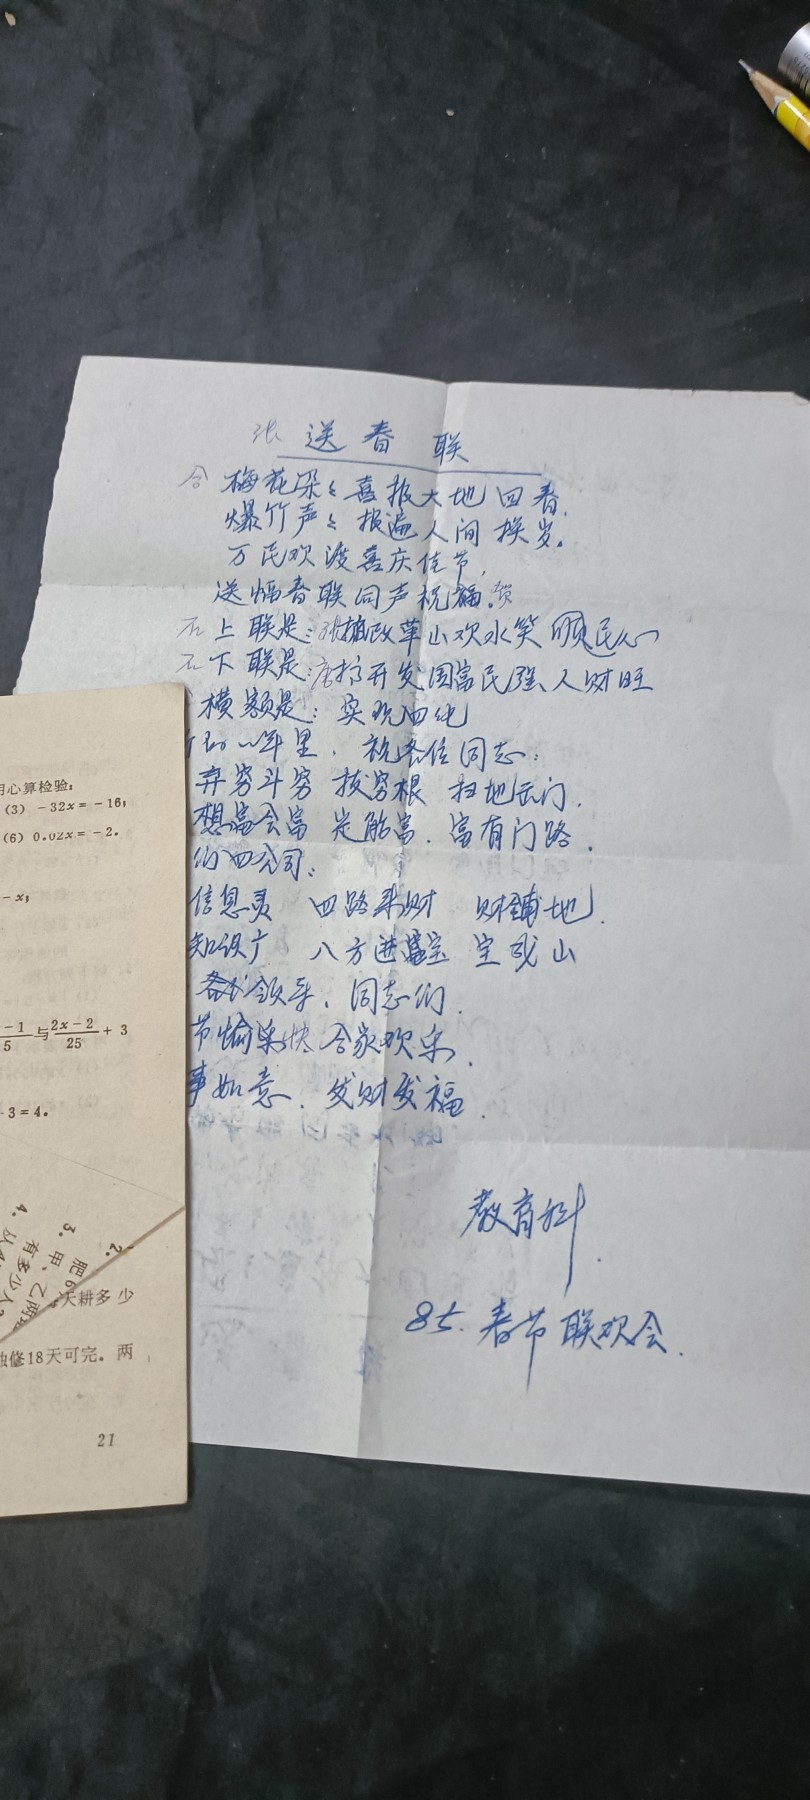 送春联
合 梅花朵々喜报大地回春.
爆竹声々报遍人间换岁。
万民欢渡喜庆佳节,
送幅春联同声祝福。贺
上联是:搞改革山欢水笑顺民心
下联是:搞开发国富民强人财旺
横额是:实现四化
年里.祝各位同志:
弃穷斗穷 拔穷根 扫地出门.
想富会富 定能富.富有门路.
们四公司:
信息灵 四路来财 财铺地.
知识广 八方进宝 宝成山
各位领导、同志们.
节愉快 合家欢乐.
事如意.发财发福.
教育科
85.春节联欢会.
心算检验:
(3) -32x=-16;
(6) 0.02x=-2.
-x;
-1/5 与 2x-2/25 + 3
3=4.
2.
肥6
3. 甲、乙两
有多少人?
4.
天耕多少
修18天可完。两
21